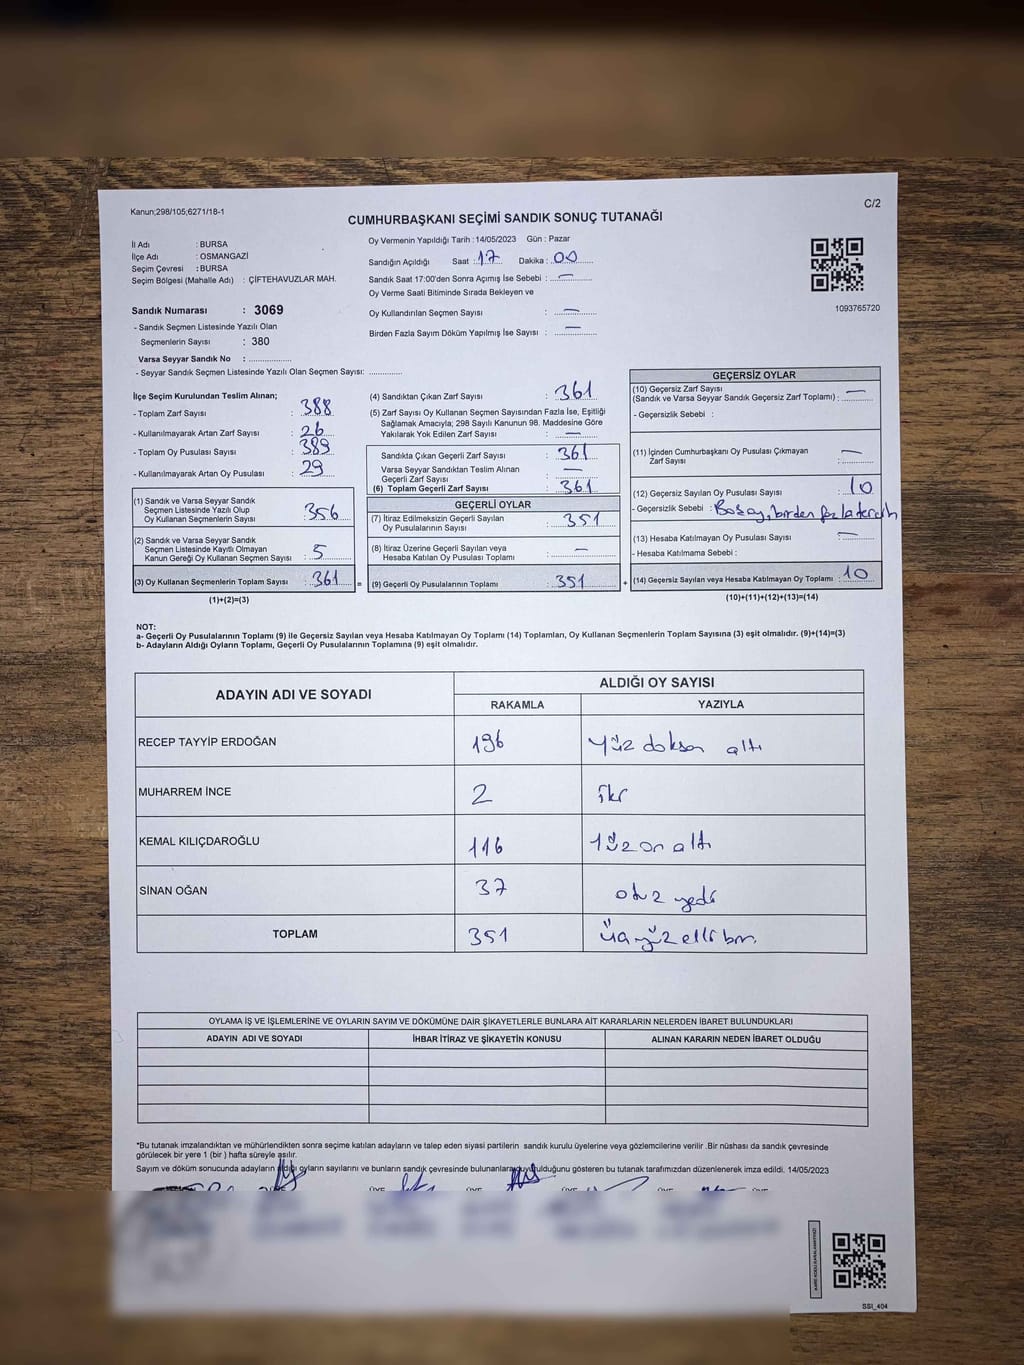 Kanun;298/105;6271/18-1
C/2
CUMHURBAŞKANI SEÇİMİ SANDIK SONUÇ TUTANAĞI
İl Adı : BURSA
İlçe Adı : OSMANGAZİ
Seçim Çevresi : BURSA
Seçim Bölgesi (Mahalle Adı) : ÇİFTEHAVUZLAR MAH.
Sandık Numarası : 3069
- Sandık Seçmen Listesinde Yazılı Olan
Seçmenlerin Sayısı : 380
Varsa Seyyar Sandık No : ..............
- Seyyar Sandık Seçmen Listesinde Yazılı Olan Seçmen Sayısı: ............
Oy Vermenin Yapıldığı Tarih : 14/05/2023 Gün : Pazar
Sandığın Açıldığı Saat : 17 Dakika : 00
Sandık Saat 17:00'den Sonra Açımış İse Sebebi : —
Oy Verme Saati Bitiminde Sırada Bekleyen ve
Oy Kullandırılan Seçmen Sayısı : —
Birden Fazla Sayım Döküm Yapılmış İse Sayısı : —
1093765720
İlçe Seçim Kurulundan Teslim Alınan;
- Toplam Zarf Sayısı : 388
- Kullanılmayarak Artan Zarf Sayısı : 26
- Toplam Oy Pusulası Sayısı : 389
- Kullanılmayarak Artan Oy Pusulası : 29
(1) Sandık ve Varsa Seyyar Sandık
Seçmen Listesinde Yazılı Olup
Oy Kullanan Seçmenlerin Sayısı : 356
(2) Sandık ve Varsa Seyyar Sandık
Seçmen Listesinde Kayıtlı Olmayan
Kanun Gereği Oy Kullanan Seçmen Sayısı : 5
(3) Oy Kullanan Seçmenlerin Toplam Sayısı : 361 =
(1)+(2)=(3)
(4) Sandıktan Çıkan Zarf Sayısı : 361
(5) Zarf Sayısı Oy Kullanan Seçmen Sayısından Fazla İse, Eşitliği
Sağlamak Amacıyla; 298 Sayılı Kanunun 98. Maddesine Göre
Yakılarak Yok Edilen Zarf Sayısı : —
Sandıkta Çıkan Geçerli Zarf Sayısı : 361
Varsa Seyyar Sandıktan Teslim Alınan
Geçerli Zarf Sayısı : —
(6) Toplam Geçerli Zarf Sayısı : 361
GEÇERLİ OYLAR
(7) İtiraz Edilmeksizin Geçerli Sayılan
Oy Pusulalarının Sayısı : 351
(8) İtiraz Üzerine Geçerli Sayılan veya
Hesaba Katılan Oy Pusulası Sayısı : —
(9) Geçerli Oy Pusulalarının Toplamı : 351 +
GEÇERSİZ OYLAR
(10) Geçersiz Zarf Sayısı
(Sandık ve Varsa Seyyar Sandık Geçersiz Zarf Toplamı) : —
- Geçersizlik Sebebi :
(11) İçinden Cumhurbaşkanı Oy Pusulası Çıkmayan
Zarf Sayısı : —
(12) Geçersiz Sayılan Oy Pusulası Sayısı : 10
- Geçersizlik Sebebi : birden fazla tercih
(13) Hesaba Katılmayan Oy Pusulası Sayısı : —
- Hesaba Katılmama Sebebi :
(14) Geçersiz Sayılan veya Hesaba Katılmayan Oy Toplamı : 10
(10)+(11)+(12)+(13)=(14)
NOT:
a- Geçerli Oy Pusulalarının Toplamı (9) ile Geçersiz Sayılan veya Hesaba Katılmayan Oy Toplamı (14) Toplamları, Oy Kullanan Seçmenlerin Toplam Sayısına (3) eşit olmalıdır. (9)+(14)=(3)
b- Adayların Aldığı Oyların Toplamı, Geçerli Oy Pusulalarının Toplamına (9) eşit olmalıdır.
ADAYIN ADI VE SOYADI ALDIĞI OY SAYISI
RAKAMLA YAZIYLA
RECEP TAYYİP ERDOĞAN 196 yüz doksan altı
MUHARREM İNCE 2 iki
KEMAL KILIÇDAROĞLU 116 yüz on altı
SİNAN OĞAN 37 otuz yedi
TOPLAM 351 üçyüz elli bir
OYLAMA İŞ VE İŞLEMLERİNE VE OYLARIN SAYIM VE DÖKÜMÜNE DAİR ŞİKAYETLERLE BUNLARA AİT KARARLARIN NELERDEN İBARET BULUNDUKLARI
ADAYIN ADI VE SOYADI İHBAR İTİRAZ VE ŞİKAYETİN KONUSU ALINAN KARARIN NEDEN İBARET OLDUĞU
*Bu tutanak imzalandıktan ve mühürlendikten sonra seçime katılan adayların ve talep eden siyasi partilerin sandık kurulu üyelerine veya gözlemcilerine verilir .Bir nüshası da sandık çevresinde
görülecek bir yere 1 (bir ) hafta süreyle asılır.
Sayım ve döküm sonucunda adayların aldığı oyların sayılarını ve bunların sandık çevresinde bulunanlara duyurulduğunu gösteren bu tutanak tarafımızdan düzenlenerek imza edildi. 14/05/2023
SSI_404